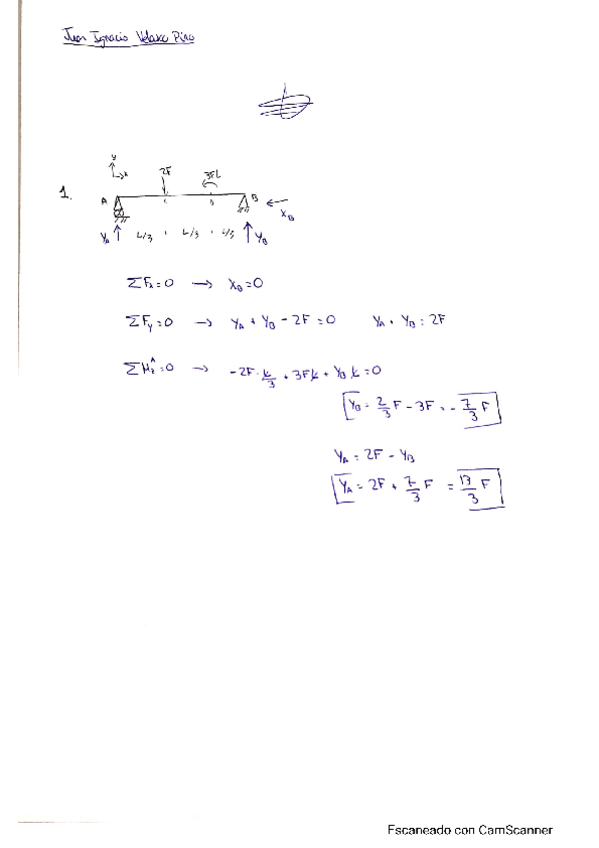 Juan Ignacio Velasco Pino
y
x
1.
2F
3FL
A
C
D
B
X_B
Y_A
L/3
L/3
L/3
Y_B
ΣFx=0 → X_B=0
ΣFy=0 → Y_A + Y_B - 2F = 0 Y_A + Y_B = 2F
ΣM_z^A=0 → -2F · L/3 + 3FL + Y_B L = 0
Y_B = 2/3 F - 3F = - 7/3 F
Y_A = 2F - Y_B
Y_A = 2F + 7/3 F = 13/3 F
Escaneado con CamScanner